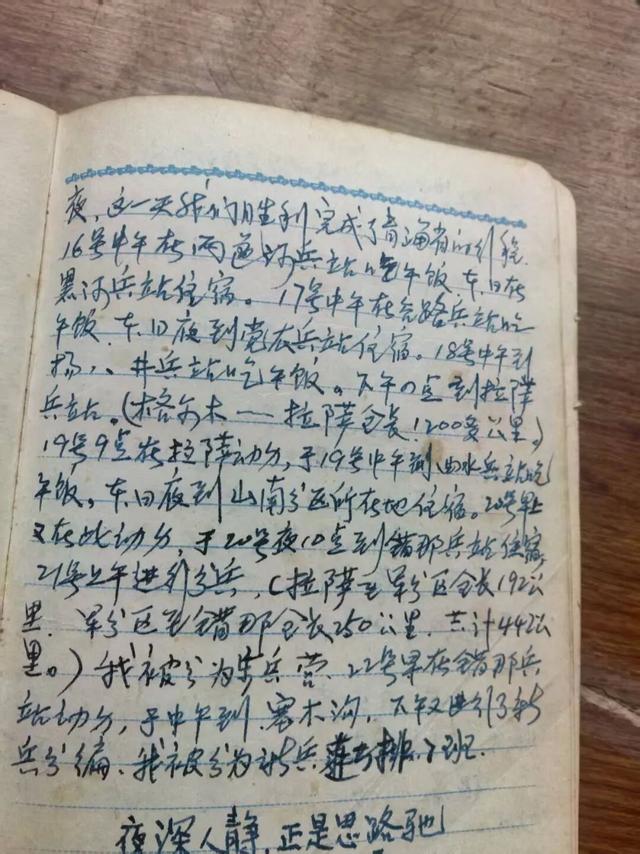 夜，这一天我们胜利完成了青海省的引程.
16号中午在两道河兵站吃午饭，本日在
黑河兵站住宿。17号中午在谷路兵站吃
午饭.本日夜到当衣兵站住宿。18号中午到
杨八井兵站吃午饭。下午0点到拉萨
兵站。（格尔木——拉萨全长1200多公里。）
19号9点在拉萨动身，于19号中午到曲水兵站吃
午饭。本日夜到山南分区所在地住宿。20号早上
又在此动身，于20号夜10点到错那兵站住宿.
21号上午进引分兵，（拉萨至军分区全长192公
里.军分区至错那全长250公里.共计442公
里。）我被分为步兵营.22号早在错那兵
站动身，于中午到寒木沟，下午又进引了新
兵分编.我被分为新兵排7班.
夜深人静，正是思路驰